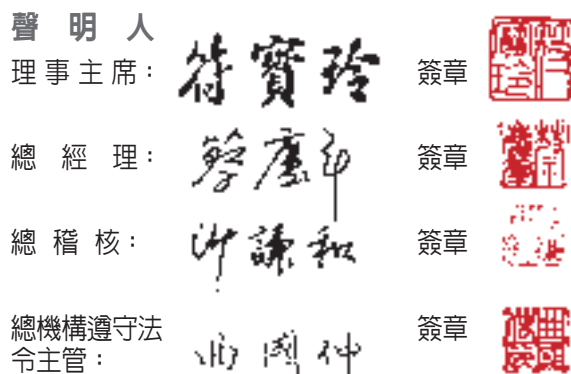 聲明人
理事主席： 符寶玲 簽章
總經理： 蔡慶年 簽章
總稽核： 謙和 簽章
總機構遵守法 簽章
令主管： 國仲